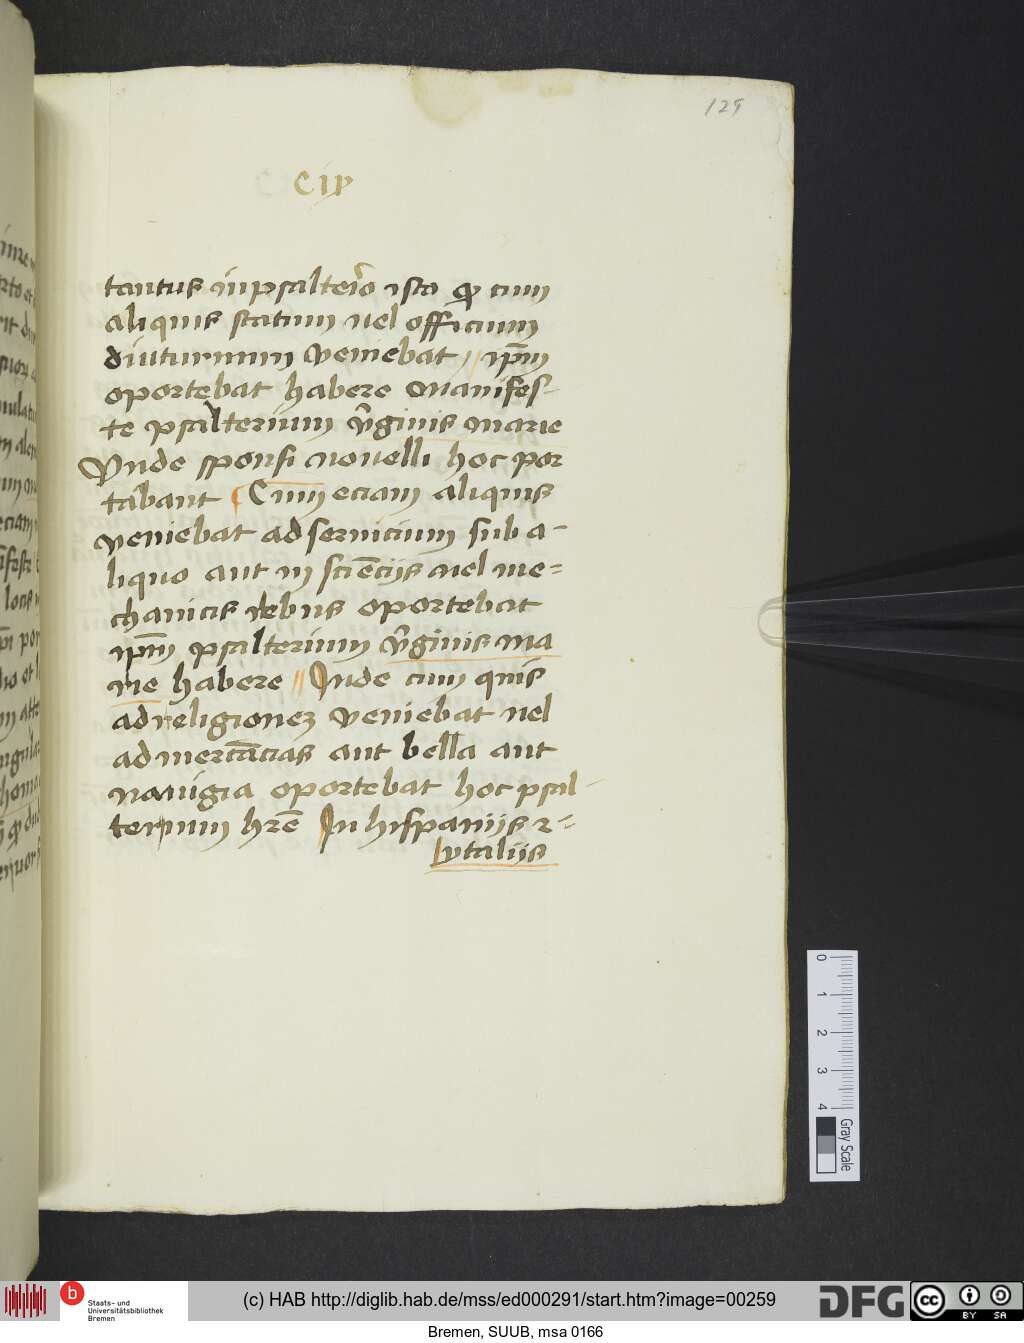 129
CIX
tantus in psalterio isto ꝙ cum
aliquis statum uel officium
diuturnum veniebat // ip̄m
oportebat habere manifes-
te psalterium v̄ginis marie
Vnde sponsi nouelli hoc por
tabant Cum eciam aliquis
veniebat ad seruicium sub a-
liquo aut in sciēcijs uel me=
chanicis rebus oportebat
ip̄m psalterium v̄ginis ma
rie habere // Inde cum quis
ad religionem veniebat uel
ad mercācias aut bella aut
nauigia oportebat hoc psal-
terium hr̄e In hispanijs ꝛ=
ytalijs
0
1
2
3
4
Gray Scale
b
Staats- und
Universitätsbibliothek
Bremen
(c) HAB http://diglib.hab.de/mss/ed000291/start.htm?image=00259
DFG
cc
BY
SA
Bremen, SUUB, msa 0166